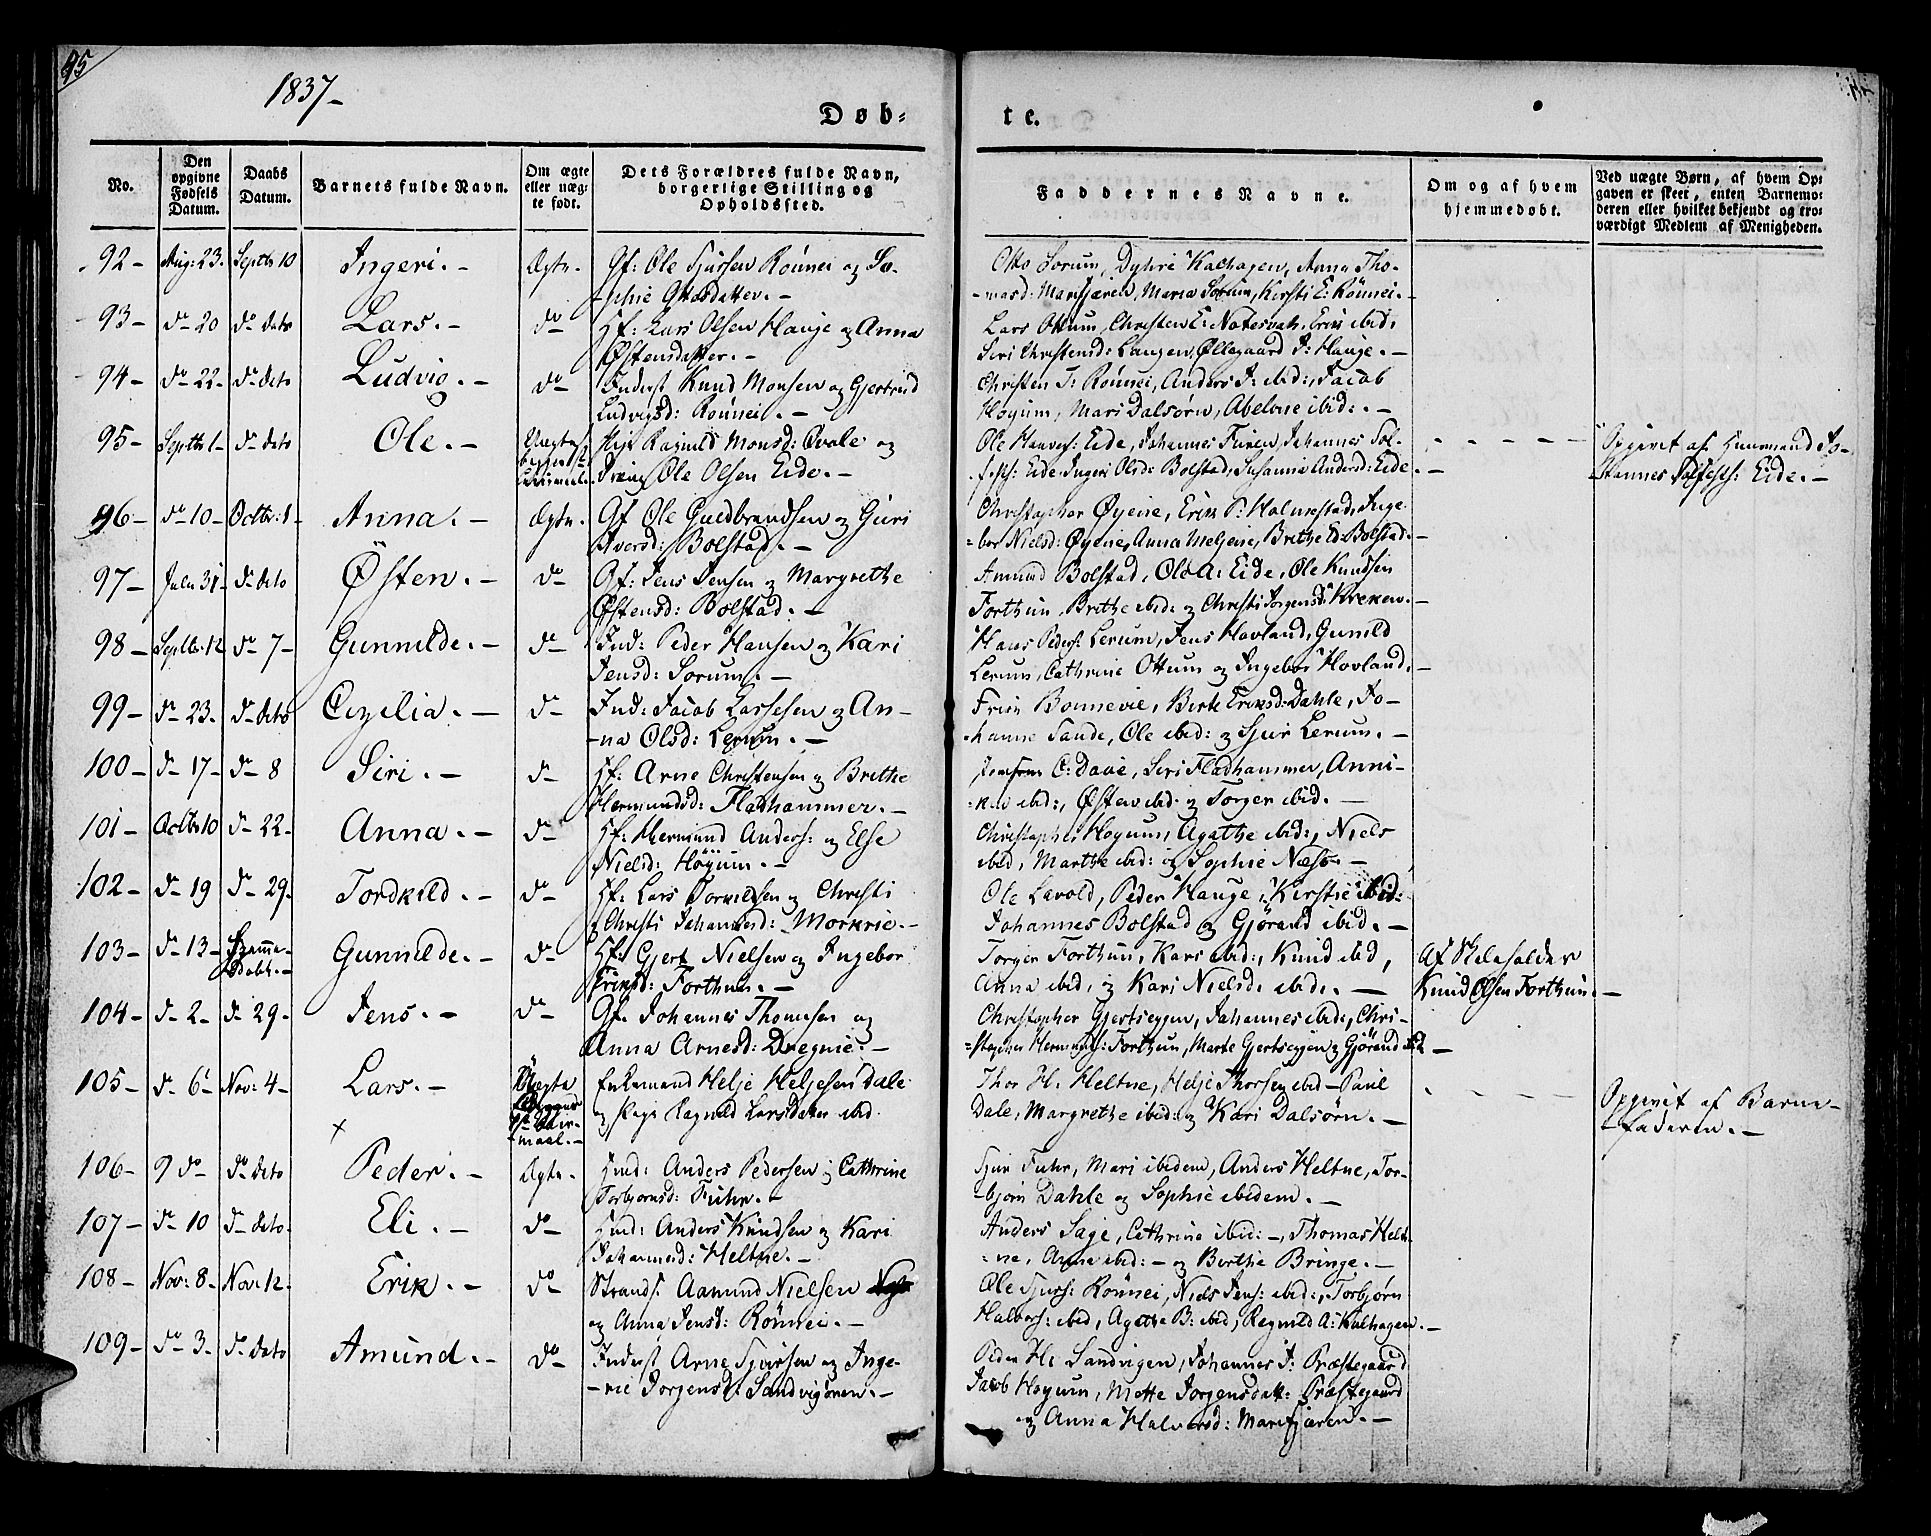 45
1837-
Døb-
te.
No.
Den opgivne Fødsels Datum.
Daabs Datum.
Barnets fulde Navn.
Om ægte eller uæg-te født.
Dets Forældres fulde Navn, borgerlige Stilling og Opholdssted.
Faddernes Navne.
Om og af hvem hjemmedøbt.
Ved uægte Børn, af hvem Op-gaven er skeet, enten Barnemo-deren eller hvilket bekjendt og tro-værdigt Medlem af Menigheden.
92- Aug: 23. Septbr 10 Ingeri.- Ægte. Gf: Ole Sjursen Rönnei og So-
-phie Ottosdatter.-
Otto Sorum, Dyhre Kalhagen, Anna Tho-
-masd: Marifjæren, Maria Sorum, Kirsti E: Rönnei.-
93- do 20 do dato Lars.- do Hf: Lars Olsen Hauge og Anna
Østensdatter.-
Lars Ottum, Christen E: Natesvah, Erik ibid:
Siri Christensd: Langen, Øllegaard J: Hauge.-
94- do 22- do dato Ludvig.- do Inderst Knud Monsen og Gjertrud
Ludvigsd: Rönnei.-
Christen J: Rönnei, Anders J: ibid:, Jacob
Høyum, Mari Dalsørn, Abelone ibid:.-
95- Septbr 1- do dato Ole.- Uægte Pige Ragnild Monsd: Qvale og
Dreng Ole Olsen Eide.-
Ole Halvors: Eide, Johannes Furen, Johannes Tol-
-fefs: Eide Ingeri Olsd: Bolstad, Susanna Andersd: Eide.-
Opgivet af Huusmand Jo-
hannes Tolfefs: Eide.-
96- do 10- Octbr: 1- Anna.- Ægte. Gf Ole Guldbrandsen og Guri
Iversd: Bolstad.-
Christopher Øyene, Erik P: Halmestad, Inge-
=bor Nielsd: Øyene, Anna Meljene, Brithe Ed: Bolstad.-
97- Julii 31- do dato Østen.- do Gf: Jens Jensen og Margrethe
Østensd: Bolstad.-
Amund Bolstad, Ole A: Eide, Ole Knudsen
Forthun Brithe ibid: og Christi Jorgensd: Kreken.-
98- Septbr: 12 do 7- Gunnilde.- do Ind: Peder Hansen og Kari
Jensd: Sorum.-
Hans Peders: Lerum, Jens Hovland, Gunild
Lerum, Cathrine Ottum og Ingebor Hovland.-
99- do 23. do dato Cezelia.- do Ind: Jacob Lassesen og An-
-na Olsd: Lerum.-
Friis Bonnevie, Birte Eriksd: Dahle, Jo-
hanne Sande, Ole ibid: og Sjur Lerum.-
100- do 17- do 8 Siri.- do Hf: Arne Christensen og Brithe
Hermundsd: Fladhammer.-
C: Dave, Siri Fladhammer, Anni-
ken ibid:, Østen ibid: og Torger ibid.-
101- Octbr 10 do 22- Anna.- do Hf: Hermund Anders: og Else
Nielsd: Høyum.-
Christopher Høyum, Agathe ibid:, Niels
ibid, Marthe ibid: og Sophie Næss.-
102- do 19 do 29. Tordkild.- do Hf: Lars Torkildsen og Christi
Christi Johannesd: Morkrie.-
Ole Lavold, Peder Hauge, Kirstie ibid:
Johannes Bolstad og Gjörand ibid.-
103- do 13- Hjemme-
Døbt.- Gunnilde.- do Hf: Gjert Nielsen og Ingebor
Eriksd: Forthun.-
Torger Forthun, Kari ibid:, Knud ibid,
Anna ibid, og Kari Nielsd: ibid:.-
Af Skoleholder
Knud Olsen Forthun.-
104- do 2- do 29- Jens.- do Gf. Johannes Thomesen og
Anna Arnesd: Dregnie.-
Christopher Gjertseggen, Johannes ibid:, Chri-
=stopher Hermunds: Forthun, Marte Gjertseggen og Gjörand ibid-
105- do 6- Nov: 4- Lars.- Uægte Enkemand Helje Heljesen Dale
og Pige Ragnild Larsdatter ibid.
Thor H. Heltne, Helje Thorsen ibid- Poul
Dale, Margrethe ibid: og Kari Dalsörn.-
Opgivet af Barne-
-faderen.-
106- 9 do do dato Peder.- Ægte. Hmd: Anders Pedersen og Cathrine
Torbjornsd: Fuhr.-
Sjur Fuhr, Mari ibidem, Anders Heltne, Tor-
-bjørn Dahle og Sophie ibidem.-
107- do 10 do dato. Eli.- do Hmd: Anders Knudsen og Kari
Johannesd: Heltne.-
Anders Sage, Cathrine ibid:-, Thomas Helt-
=ne, Anna ibid:- og Berthe Bringe.-
108- Nov: 8- Nov: 12. Erik.- do Strands: Aamund Nielsen
og Anna Jensd: Rönnei.-
Ole Sjurs: Rönnei, Niels Jens: ibid:, Torbjørn
Halvors: ibid, Agathe B: ibid, Ragnild A: Kalhagen.-
109- do 3- do dato Amund.- do Inderst Arne Sjursen og Inge-
-rie Jorgensd: Sandvigören.-
Peder H: Sandvigen, Johannes J: Præstegaard
Jacob Høyum, Mette Jorgensdatt: Præstegaard
og Anna Halvorsd: Marifjæren.-